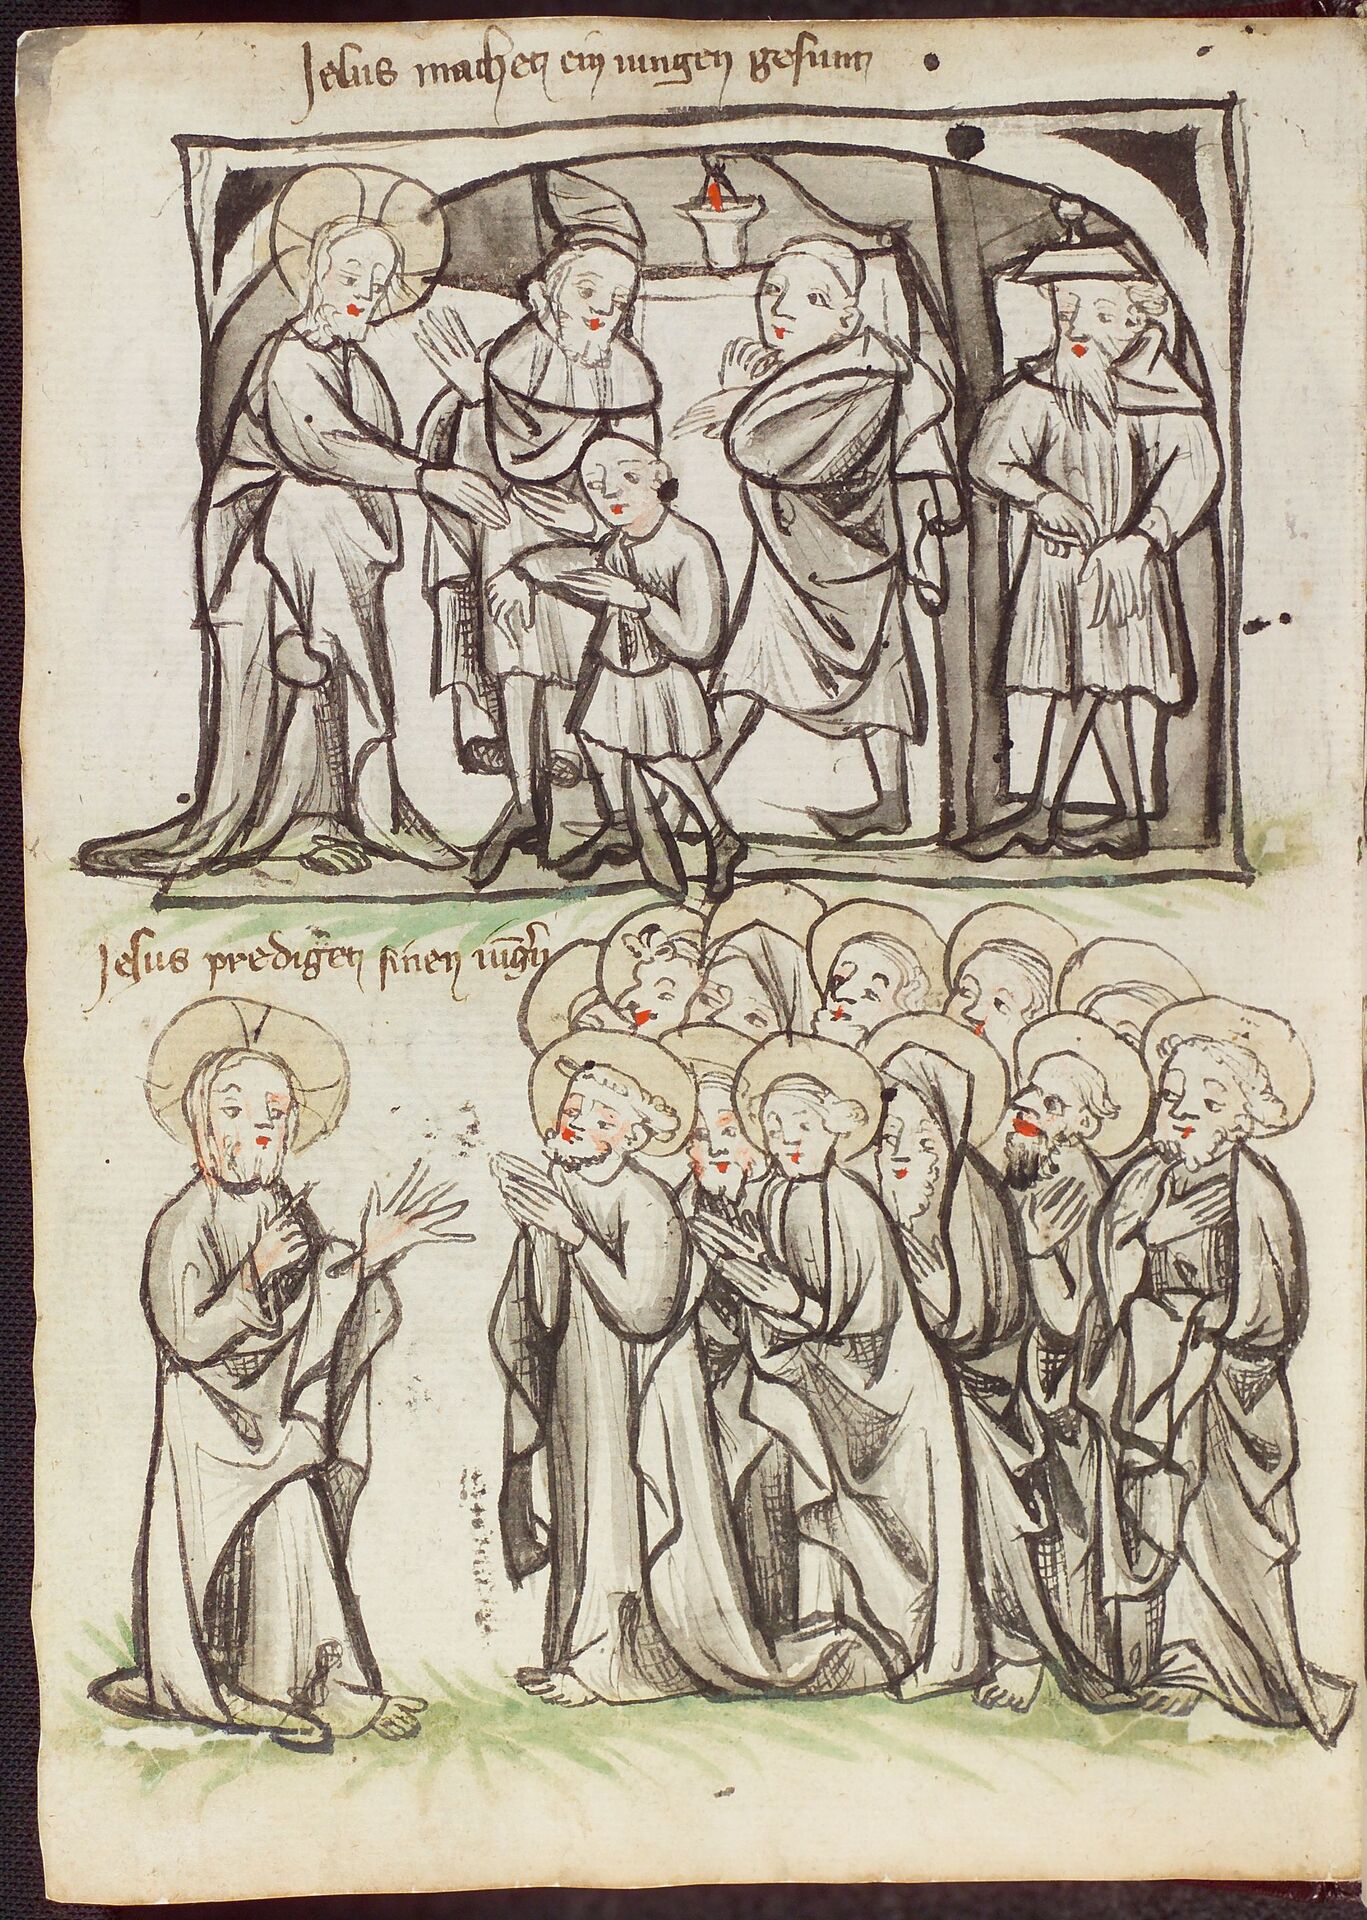 Jesus machet ein iungen gesunt
Jesus prediget sinen iūgˀn